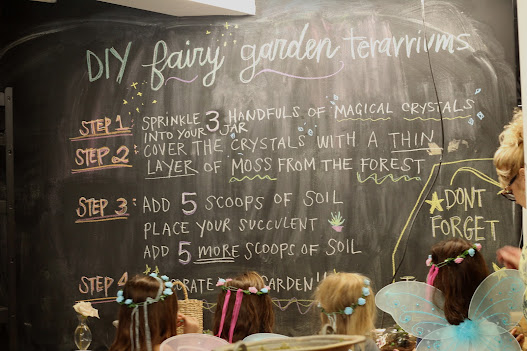 DIY fairy garden Terarriums
STEP 1 SPRINKLE 3 HANDFULS OF MAGICAL CRYSTALS
INTO YOUR JAR
STEP 2: COVER THE CRYSTALS WITH A THIN
LAYER OF MOSS FROM THE FOREST
STEP 3: ADD 5 SCOOPS OF SOIL
PLACE YOUR SUCCULENT
ADD 5 MORE SCOOPS OF SOIL
STEP 4 GARDEN!!
DONT
FORGET